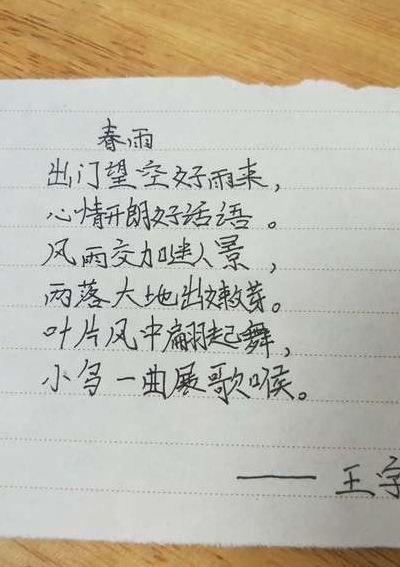 春雨
出门望空好雨来，
心情开朗好话语。
风雨交加迷人景，
雨落大地出嫩芽。
叶片风中翩翩起舞，
小鸟一曲展歌喉。
—— 王